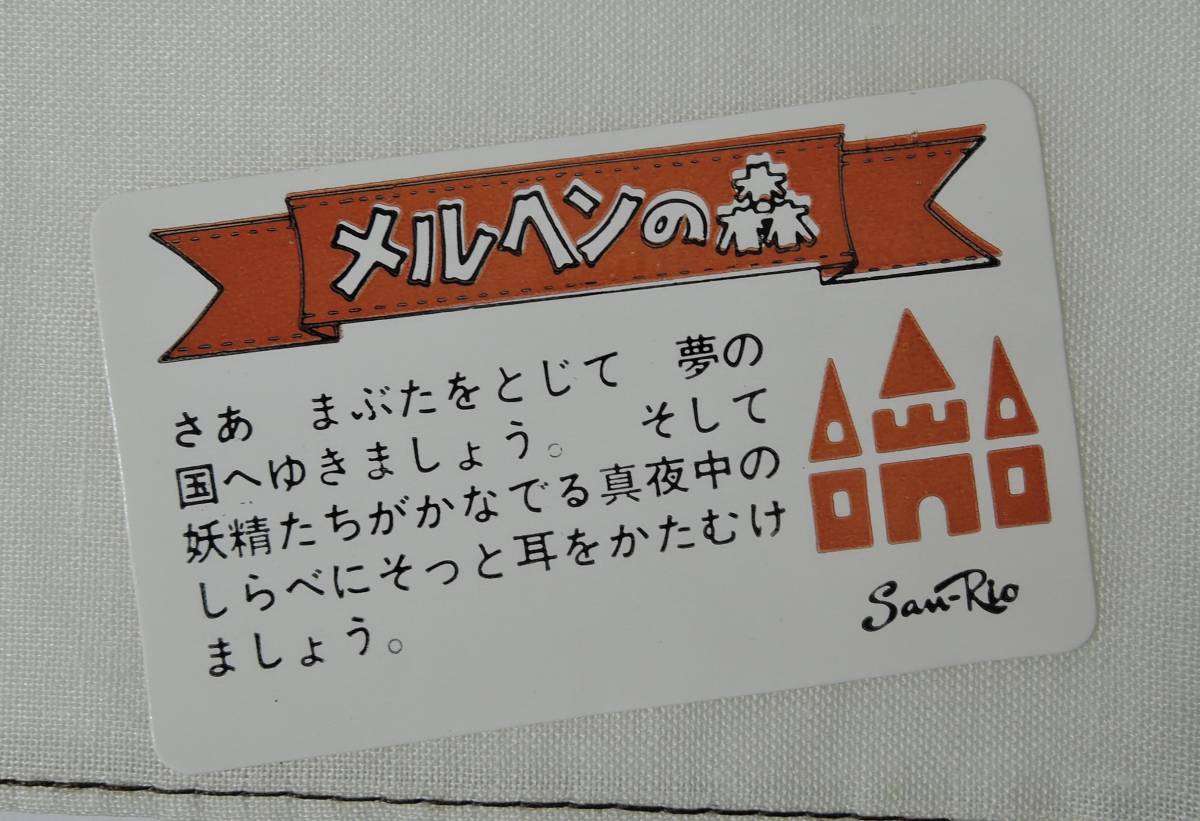 メルヘンの森
さあ　まぶたをとじて　夢の
国へゆきましょう。　そして
妖精たちがかなでる真夜中の
しらべにそっと耳をかたむけ
ましょう。
San-Rio